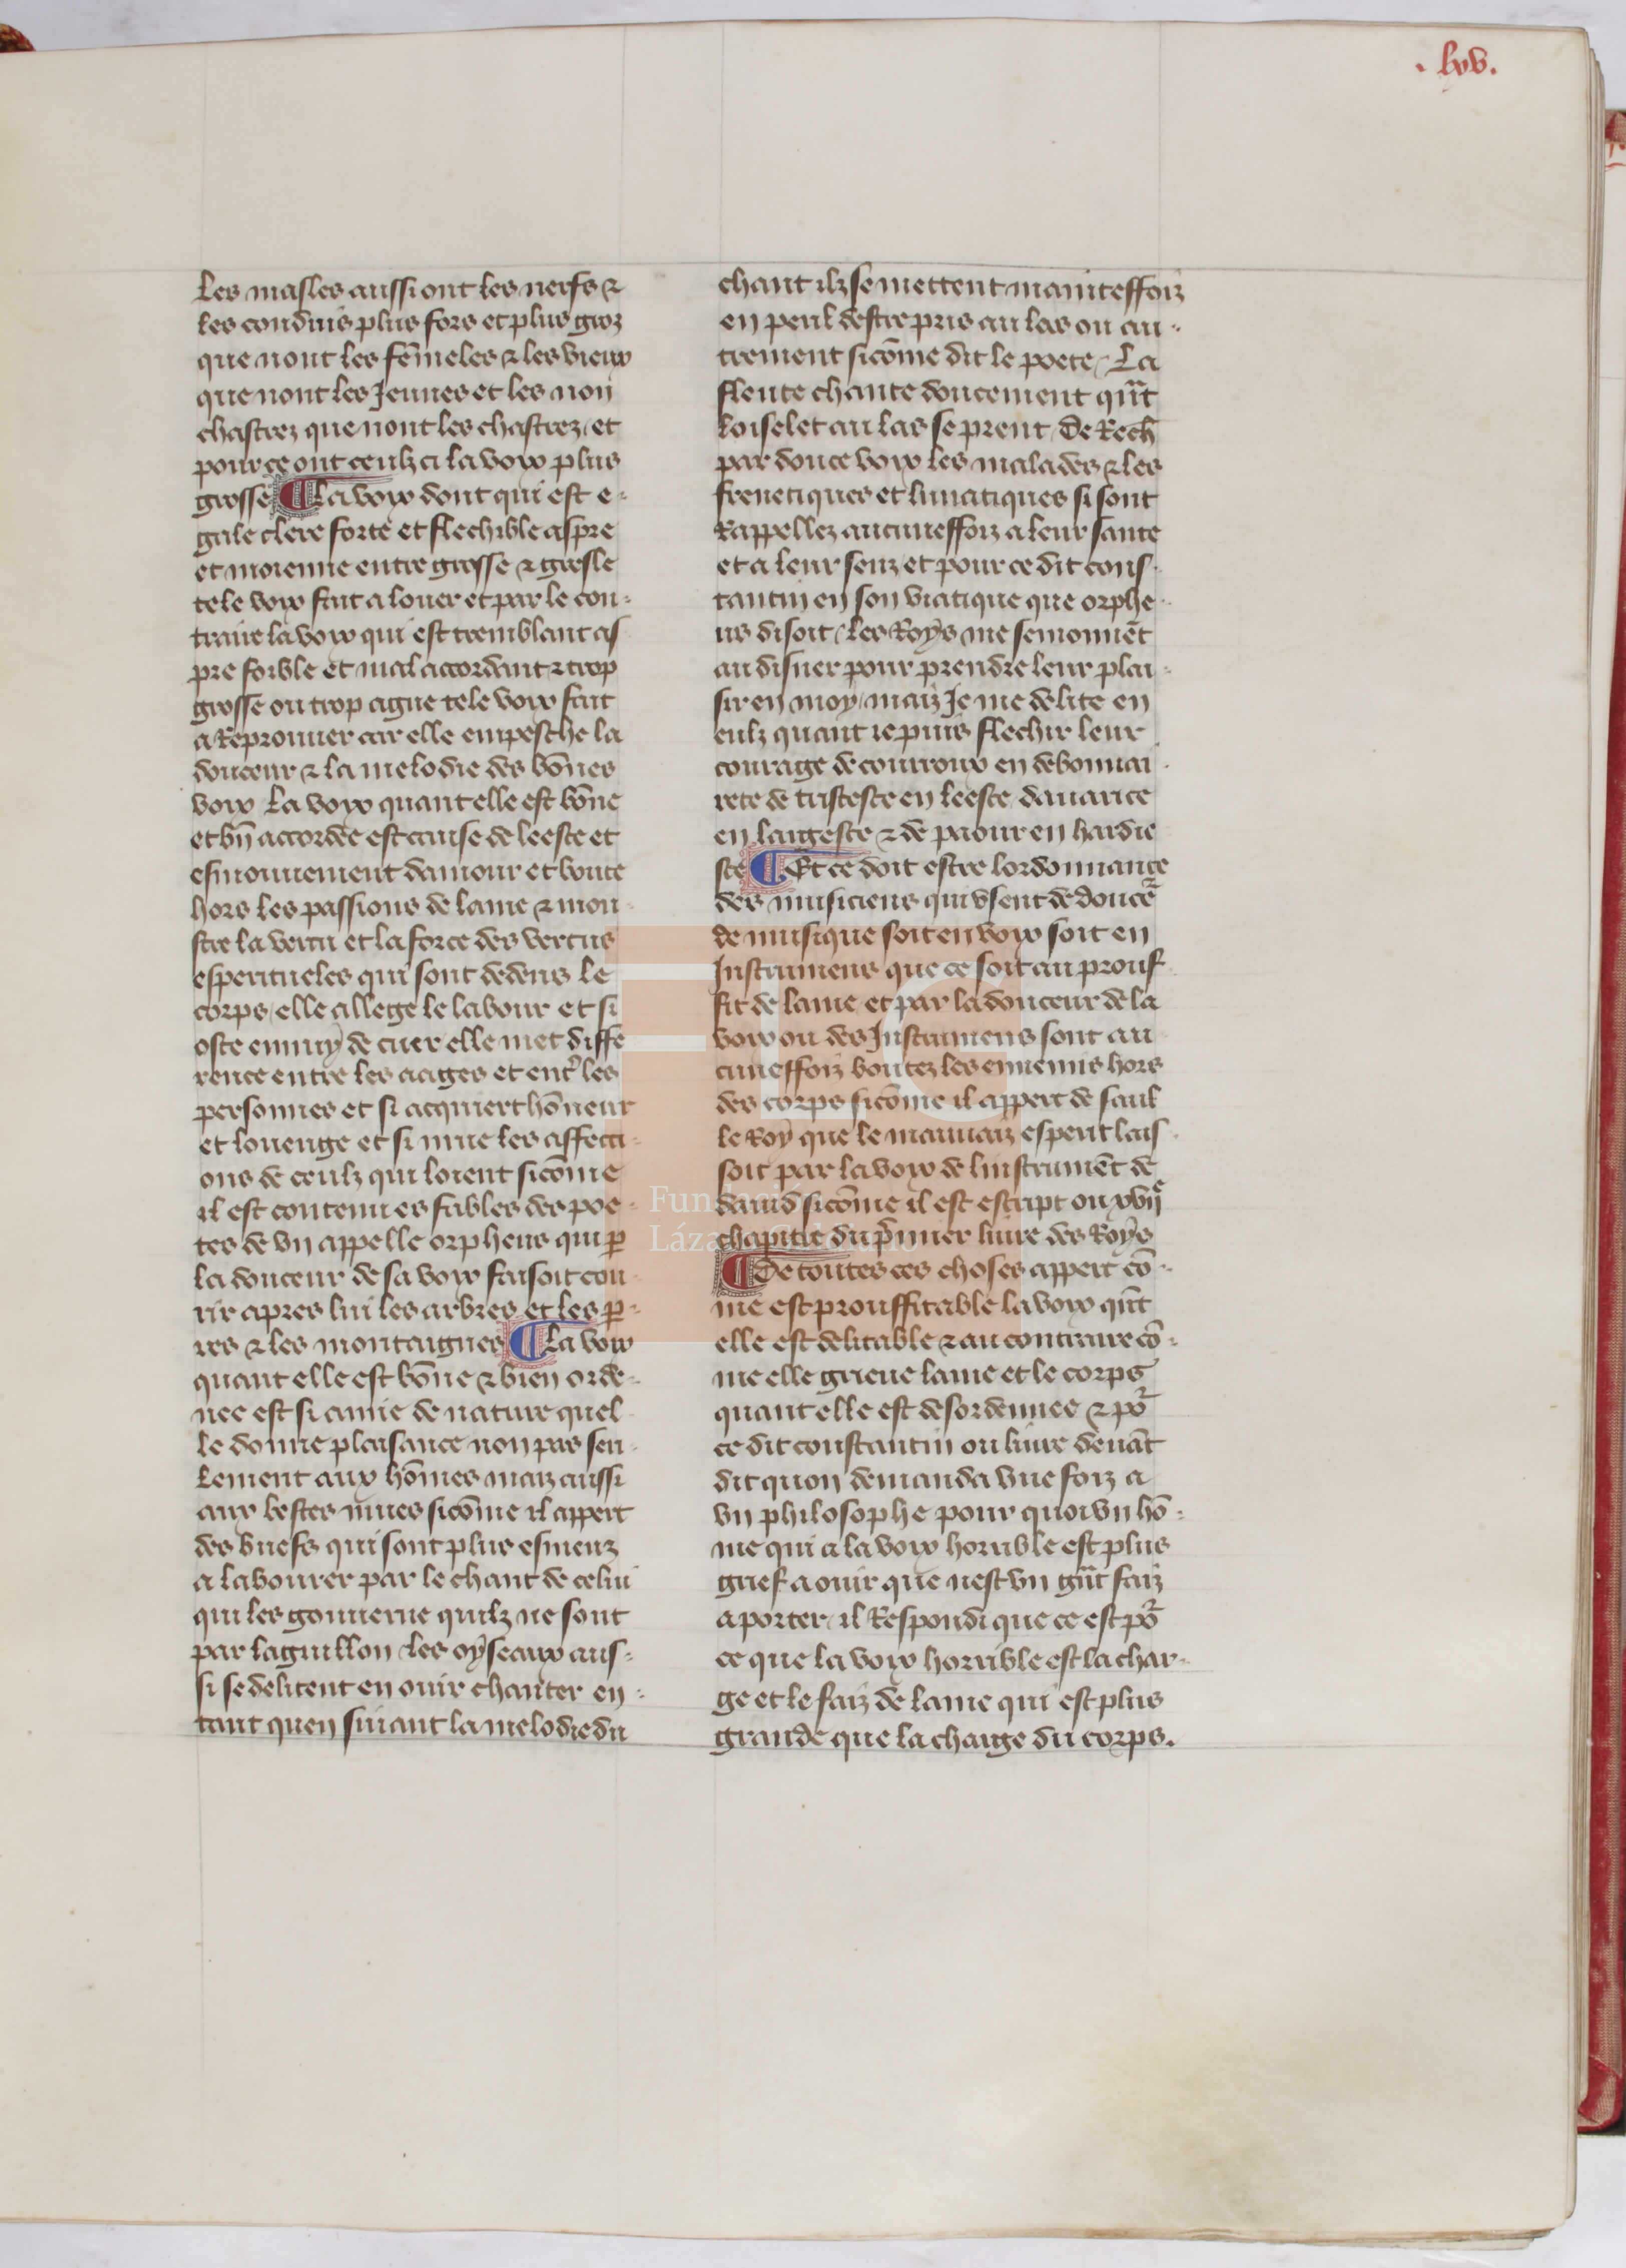 . lxv.
Les masles aussi ont les nerfs ⁊
les conduis plus fors et plus groz
que nont les fēmeles ⁊ les vieux
que nont les Jeunes et les non
chastrez que nont les chastrez / et
pour ce ont ceulz ci la voix plus
grosse ¶ La voix dont qui est e-
gale clere forte et flechible aspre
et moienne entre grosse ⁊ gresle
tele voix fait a louer et par le con-
traire la voix qui est tremblant as
pre foible et mal accordant ⁊ trop
grosse ou trop ague tele voix fait
a Reprouuer car elle empesche la
douceur ⁊ la melodie des bōnes
voix La voix quant elle est bōne
et bn̄ accordee est cause de leesce et
esmouuement damour et boute
hors les passions de lame ⁊ mon
stre la vertu et la force des vertus
esperitueles qui sont dedens le
corps / elle allege le labour et si
oste ennuy de cuer elle met diffe
rence entre les aages et ent̕ les
personnes et si acquiert hōneur
et louenge et si mue les affecci-
ons de ceulz qui loient sicōme
il est contenu es fables des poe-
tes de vn appelle orpheus qui ꝑ
la douceur de sa voix faisoit cou
rir apres lui les arbres et les p̱-
res ⁊ les montaignes ¶ La voix
quant elle est bōne ⁊ bien orde-
nee est si amie de nature quel
le donne plaisance non pas seu-
lement aux hōmes maiz aussi
aux bestes mues sicōme il appert
des buefs qui sont plus esmeuz
a labourer par le chant de celui
qui les gouuerne quilz ne sont
par laguillon / les oyseaux aus-
si se delitent en ouir chanter en-
tant quen suiant la melodie du
chant ilz se mettent mainteffoiz
en peril destre pris au las ou au-
trement sicōme dit le poete / La
fleute chante doucement qn̄t
loiselet au las se prent / De Rech̄
par douce voix les malades ⁊ les
frenetiques et lunatiques si sont
Rappellez aucuneffoiz a leur sante
et a leur senz et pour ce dit cons-
tantin en son viatique que orphe-
us disoit / les Roys me semonnēt
au disner pour prendre leur plai-
sir en moy / maiz Je me delite en
eulz quant ie puis flechir leur
courage de courroux en debonnai-
rete de tristesce en leesce / dauarice
en largesce ⁊ de paour en hardie
sce ¶ Et ce doit estre lordonnance
des musiciens qui vsent de doucer̄
de musique soit en voix soit en
Instrumens que ce soit au prouf
fit de lame et par la douceur de la
voix ou des Instrumens sont au
cuneffoiz boutez les ennemis hors
des corps sicōme il appert de saul
le Roy que le mauuaiz esperit lais-
soit par la voix de linstrumēt de
dauid sicōme il est escript ou xvijᵉ
chapitre du p̄mier liure des Roys
¶ De toutes ces choses appert cō-
me est prouffitable la voix qn̄t
elle est delitable ⁊ au contraire cō-
me elle grieue lame et le corps
quant elle est desordennee ⁊ po᷑
ce dit constantin ou liure deuāt
dit quon demanda vne foiz a
vn philosophe pour quoi vn hō-
me qui a la voix horrible est plus
grief a ouir que nest vn gn̄t faiz
a porter / il Respondi que ce est po᷑
ce que la voix horrible est la char-
ge et le faiz de lame qui est plus
grande que la charge du corps.